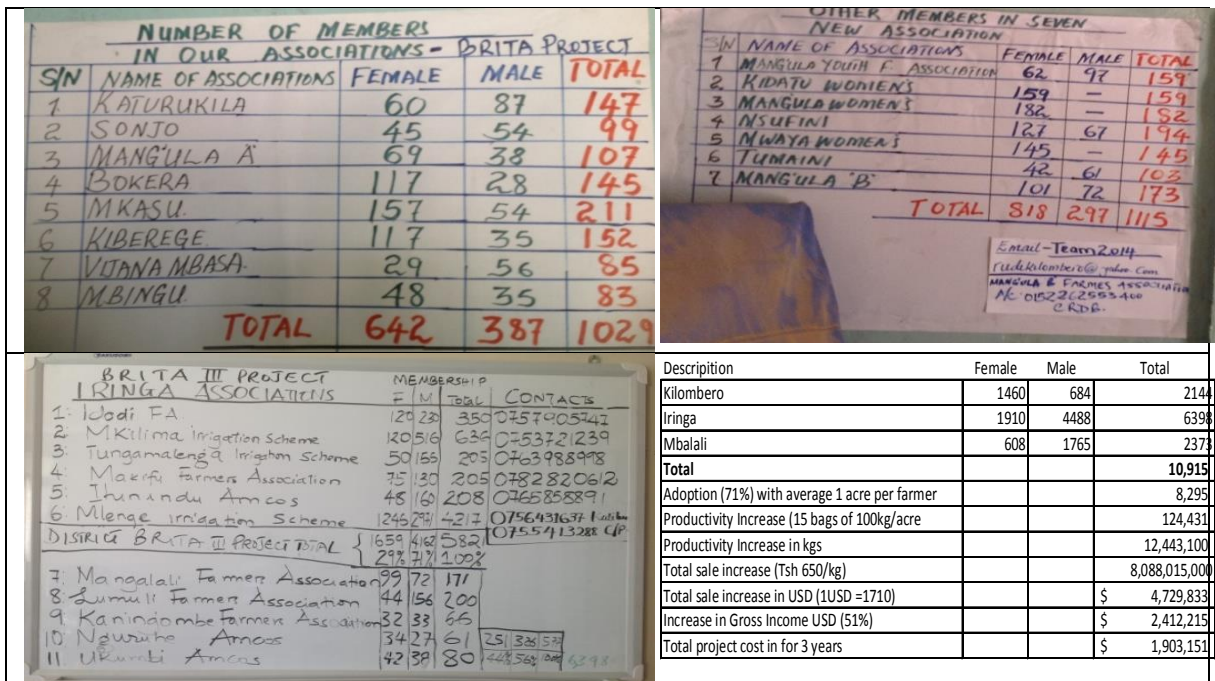 NUMBER OF MEMBERS
IN OUR ASSOCIATIONS - BRITA PROJECT
S/N NAME OF ASSOCIATIONS FEMALE MALE TOTAL
1 KATURUKILA 60 87 147
2 SONJO 45 54 99
3 MANG'ULA A 69 38 107
4 BOKERA 117 28 145
5 MKASU. 157 54 211
6 KIBEREGE. 117 35 152
7 VIJANA MBASA. 29 56 85
8 MBINGU. 48 35 83
TOTAL 642 387 1029
OTHER MEMBERS IN SEVEN
NEW ASSOCIATION
S/N NAME OF ASSOCIATIONS FEMALE MALE TOTAL
1 MANGULA YOUTH F. ASSOCIATION 62 97 159
2 KIDATU WOMEN'S 159 - 159
3 MANGULA WOMEN'S 182 - 182
4 NSUFINI 127 67 194
5 MWAYA WOMEN'S 145 - 145
6 TUMAINI 42 61 103
7 MANG'ULA 'B' 101 72 173
TOTAL 818 297 1115
Email-Team2014
rudikilombero@yahoo.com
MANGULA B FARMES ASSOCIATION
A/C 0152262553400
CRDB.
BRITA III PROJECT
IRINGA ASSOCIATIONS
MEMBERSHIP
F M TOTAL CONTACTS
1: Idodi FA. 120 230 350 0757905747
2: Mkilima Irrigation Scheme 120 516 636 0753721239
3: Tungamalenga Irrigation Scheme 50 155 205 0763988998
4: Makifu Farmers Association 75 130 205 0782820612
5: Ihunindu Amcos 48 160 208 0765858891
6: Mlenge irrigation Scheme 1246 2971 4217 0756431637
0755413288 C/P
DISTRICT BRITA III PROJECT TOTAL 1659 4162 5821
29% 71% 100%
7: Mangalali Farmers Association 99 72 171
8: Lumuli Farmers Association 44 156 200
9: Kanindombe Farmers Association 32 33 65
10 Nguruhe Amcos 34 27 61
11 Ukumbi Amcos 42 38 80
251
44% 56% 100% 6,398
Descripition Female Male Total
Kilombero 1460 684 2144
Iringa 1910 4488 6398
Mbalali 608 1765 2373
Total 10,915
Adoption (71%) with average 1 acre per farmer 8,295
Productivity Increase (15 bags of 100kg/acre 124,431
Productivity Increase in kgs 12,443,100
Total sale increase (Tsh 650/kg) 8,088,015,000
Total sale increase in USD (1USD =1710) $ 4,729,833
Increase in Gross Income USD (51%) $ 2,412,215
Total project cost in for 3 years $ 1,903,151